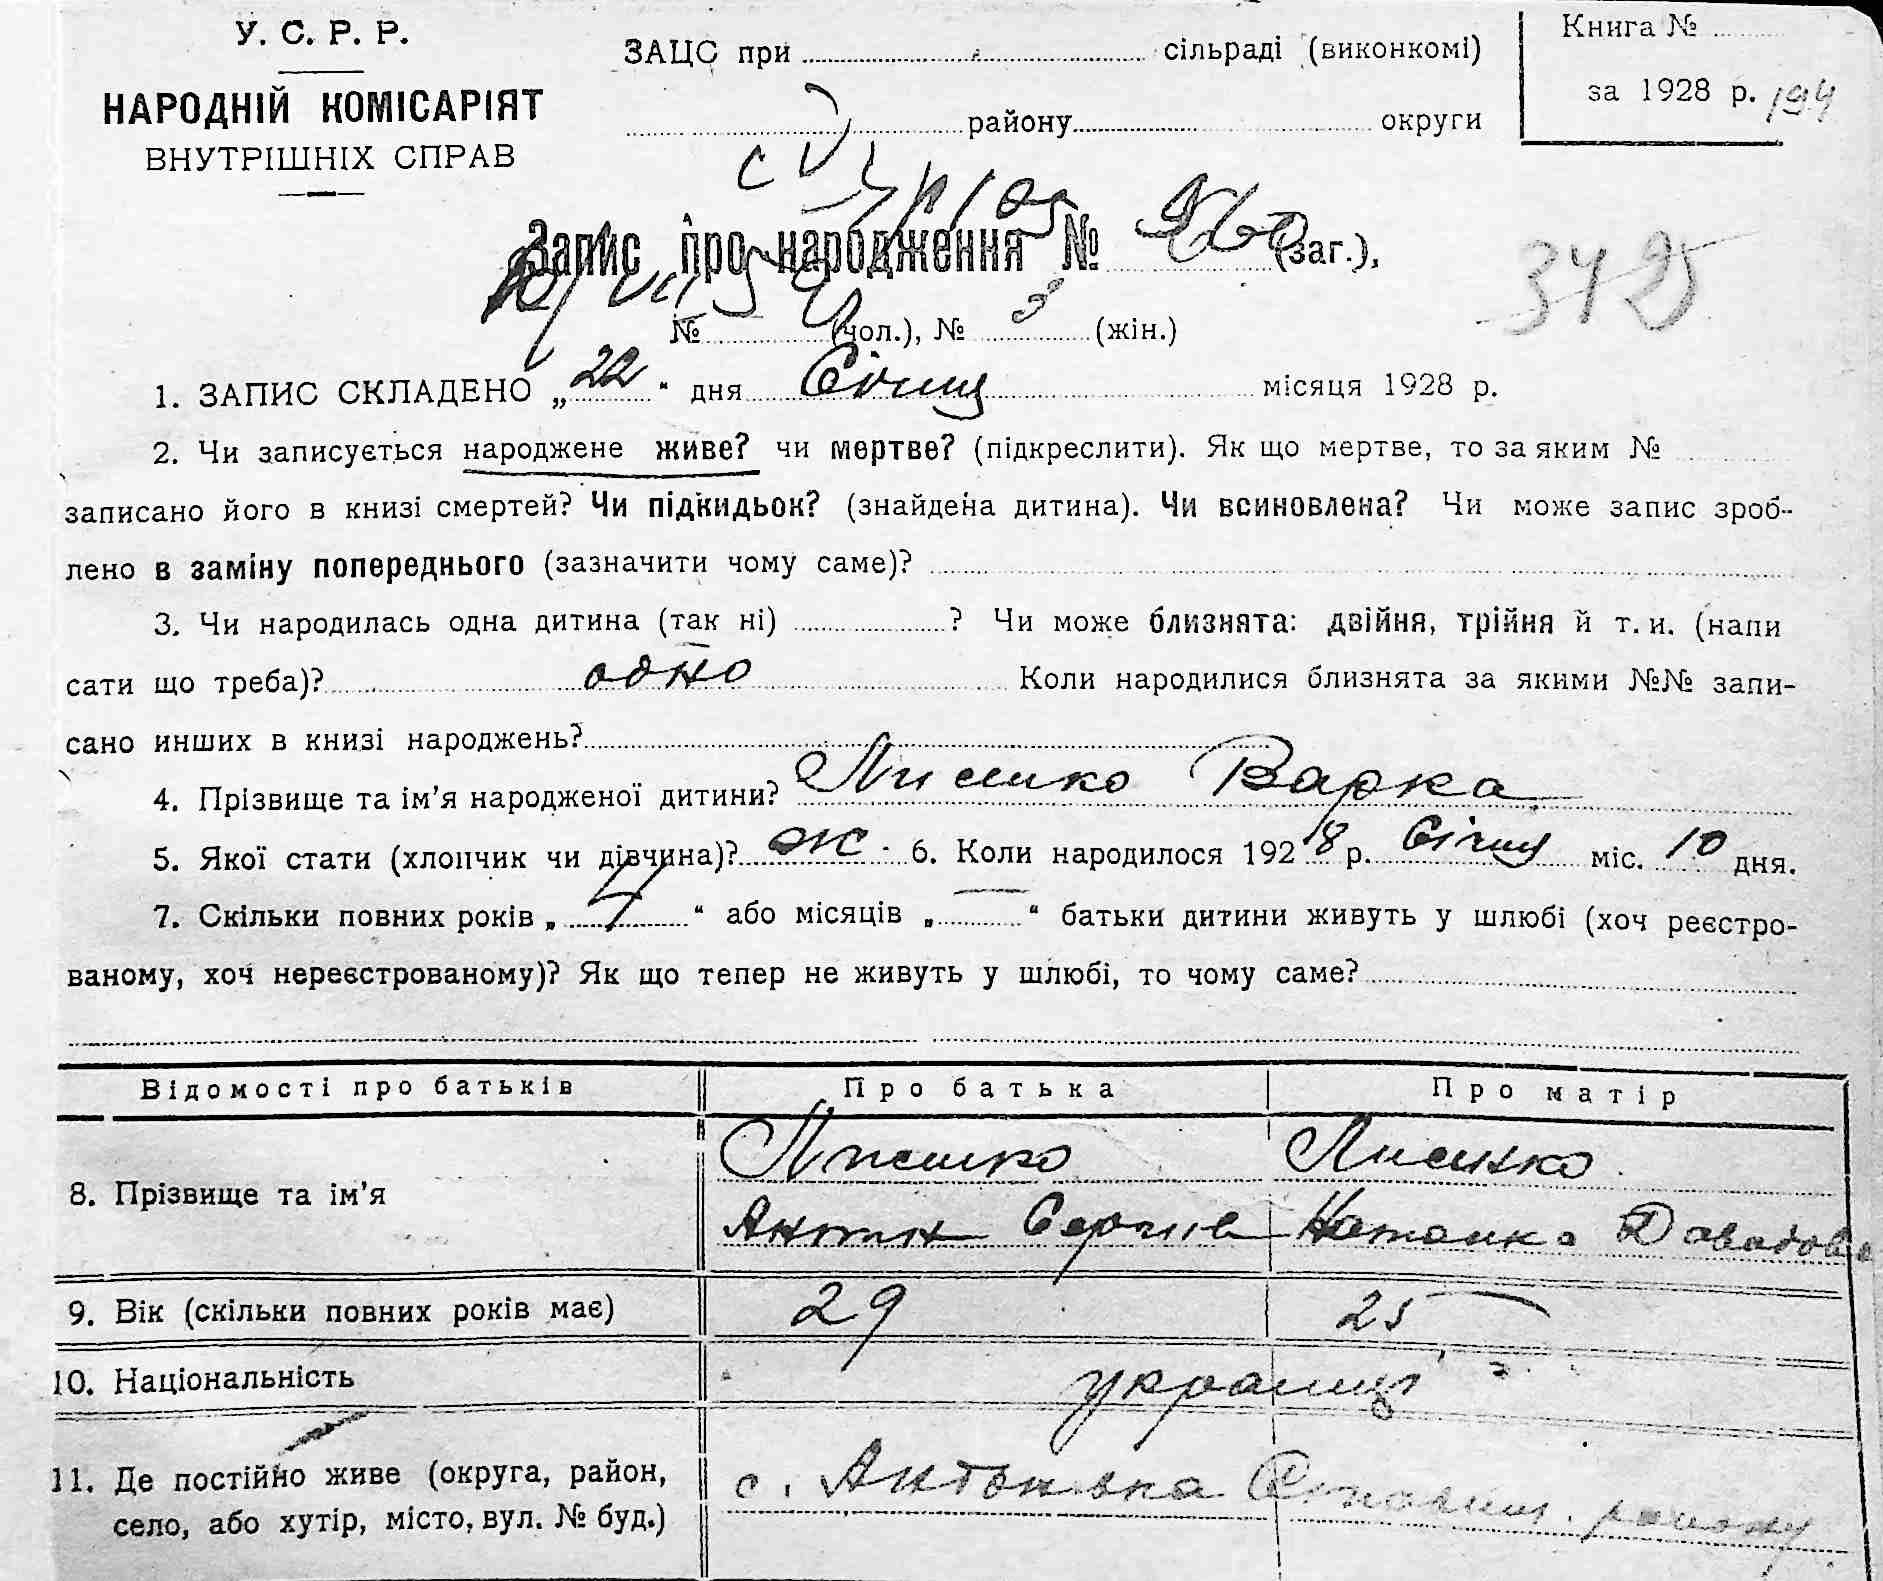 У. С. Р. Р.
НАРОДНІЙ КОМІСАРІЯТ
ВНУТРІШНІХ СПРАВ
ЗАЦС при сільраді (виконкомі)
району округи
Книга №
за 1928 р. 194
Запис про народження № (заг.),
3425
№ (чол.), № 3 (жін.)
1. ЗАПИС СКЛАДЕНО „22“ дня Січня місяця 1928 р.
2. Чи записується народжене живе? чи мертве? (підкреслити). Як що мертве, то за яким №
записано його в книзі смертей? Чи підкидьок? (знайдена дитина). Чи всиновлена? Чи може запис зроб-
лено в заміну попереднього (зазначити чому саме)?
3. Чи народилась одна дитина (так ні) ? Чи може близнята: двійня, трійня й т. и. (напи
сати що треба)? одно Коли народилися близнята за якими №№ запи-
сано инших в книзі народжень?
4. Прізвище та ім’я народженої дитини? Лисенко Варка
5. Якої стати (хлопчик чи дівчина)? ж. 6. Коли народилося 1928 р. Січня міс. 10 дня.
7. Скільки повних років „ 7 “ або місяців „ — “ батьки дитини живуть у шлюбі (хоч реєстро-
ваному, хоч нереєстрованому)? Як що тепер не живуть у шлюбі, то чому саме?
Відомості про батьків Про батька Про матір
8. Прізвище та ім’я Лисенко Лисенко
Антін Сергіїв Наталка Давидова
9. Вік (скільки повних років має) 29 25
10. Національність українці
11. Де постійно живе (округа, район, с. Антонівка району
село, або хутір, місто, вул. № буд.)